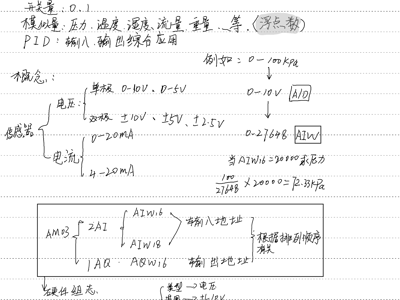 开关量：0.1
模拟量：压力、温度、湿度、流量、重量、、等、（浮点数）
PID：输入、输出综合应用
例如：0-100kPa
概念：
0-10V A/D
0-27648 AIW
传感器
电压：
单极 0-10V、0-5V
双极 ±10V、±5V、±2.5V
电流
0-20mA
4-20mA
当AIW16=20000求压力
100/27648 × 20000=72.33kPa
AM03
2AI
AIW16
AIW18
输入地址
1AQ AQW16 输出地址
根据排列顺序有关
硬件组态
类型→电压